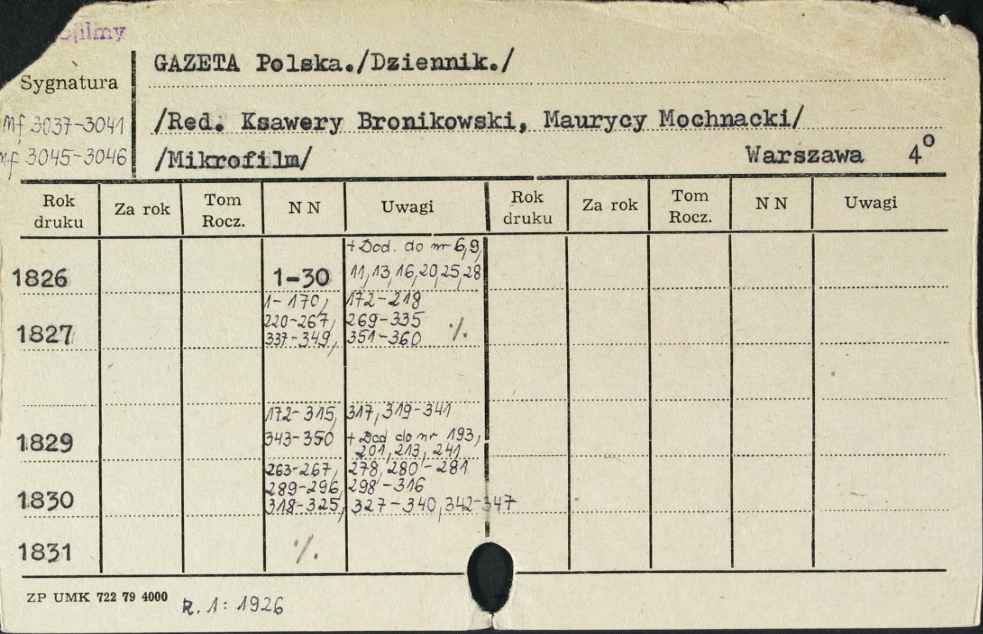 filmy
GAZETA Polska./Dziennik./
Sygnatura
mf 3037-3041 /Red. Ksawery Bronikowski, Maurycy Mochnacki/
mf 3045-3046 /Mikrofilm/ Warszawa 4º
Rok druku Za rok Tom Rocz. NN Uwagi Rok druku Za rok Tom Rocz. NN Uwagi
+ Dod. do nr 6,9,
1826 1-30 11,13,16,20,25,28
1-170, 172-218
1827 220-267, 269-335 ./.
337-349, 351-360
172-315, 317, 319-341
1829 343-350 + Dod do nr 193,
201, 213, 241
263-267, 278, 280-281
1830 289-296, 298-316
318-325, 327-340, 342-347
1831 ./.
ZP UMK 722 79 4000 R. 1: 1926